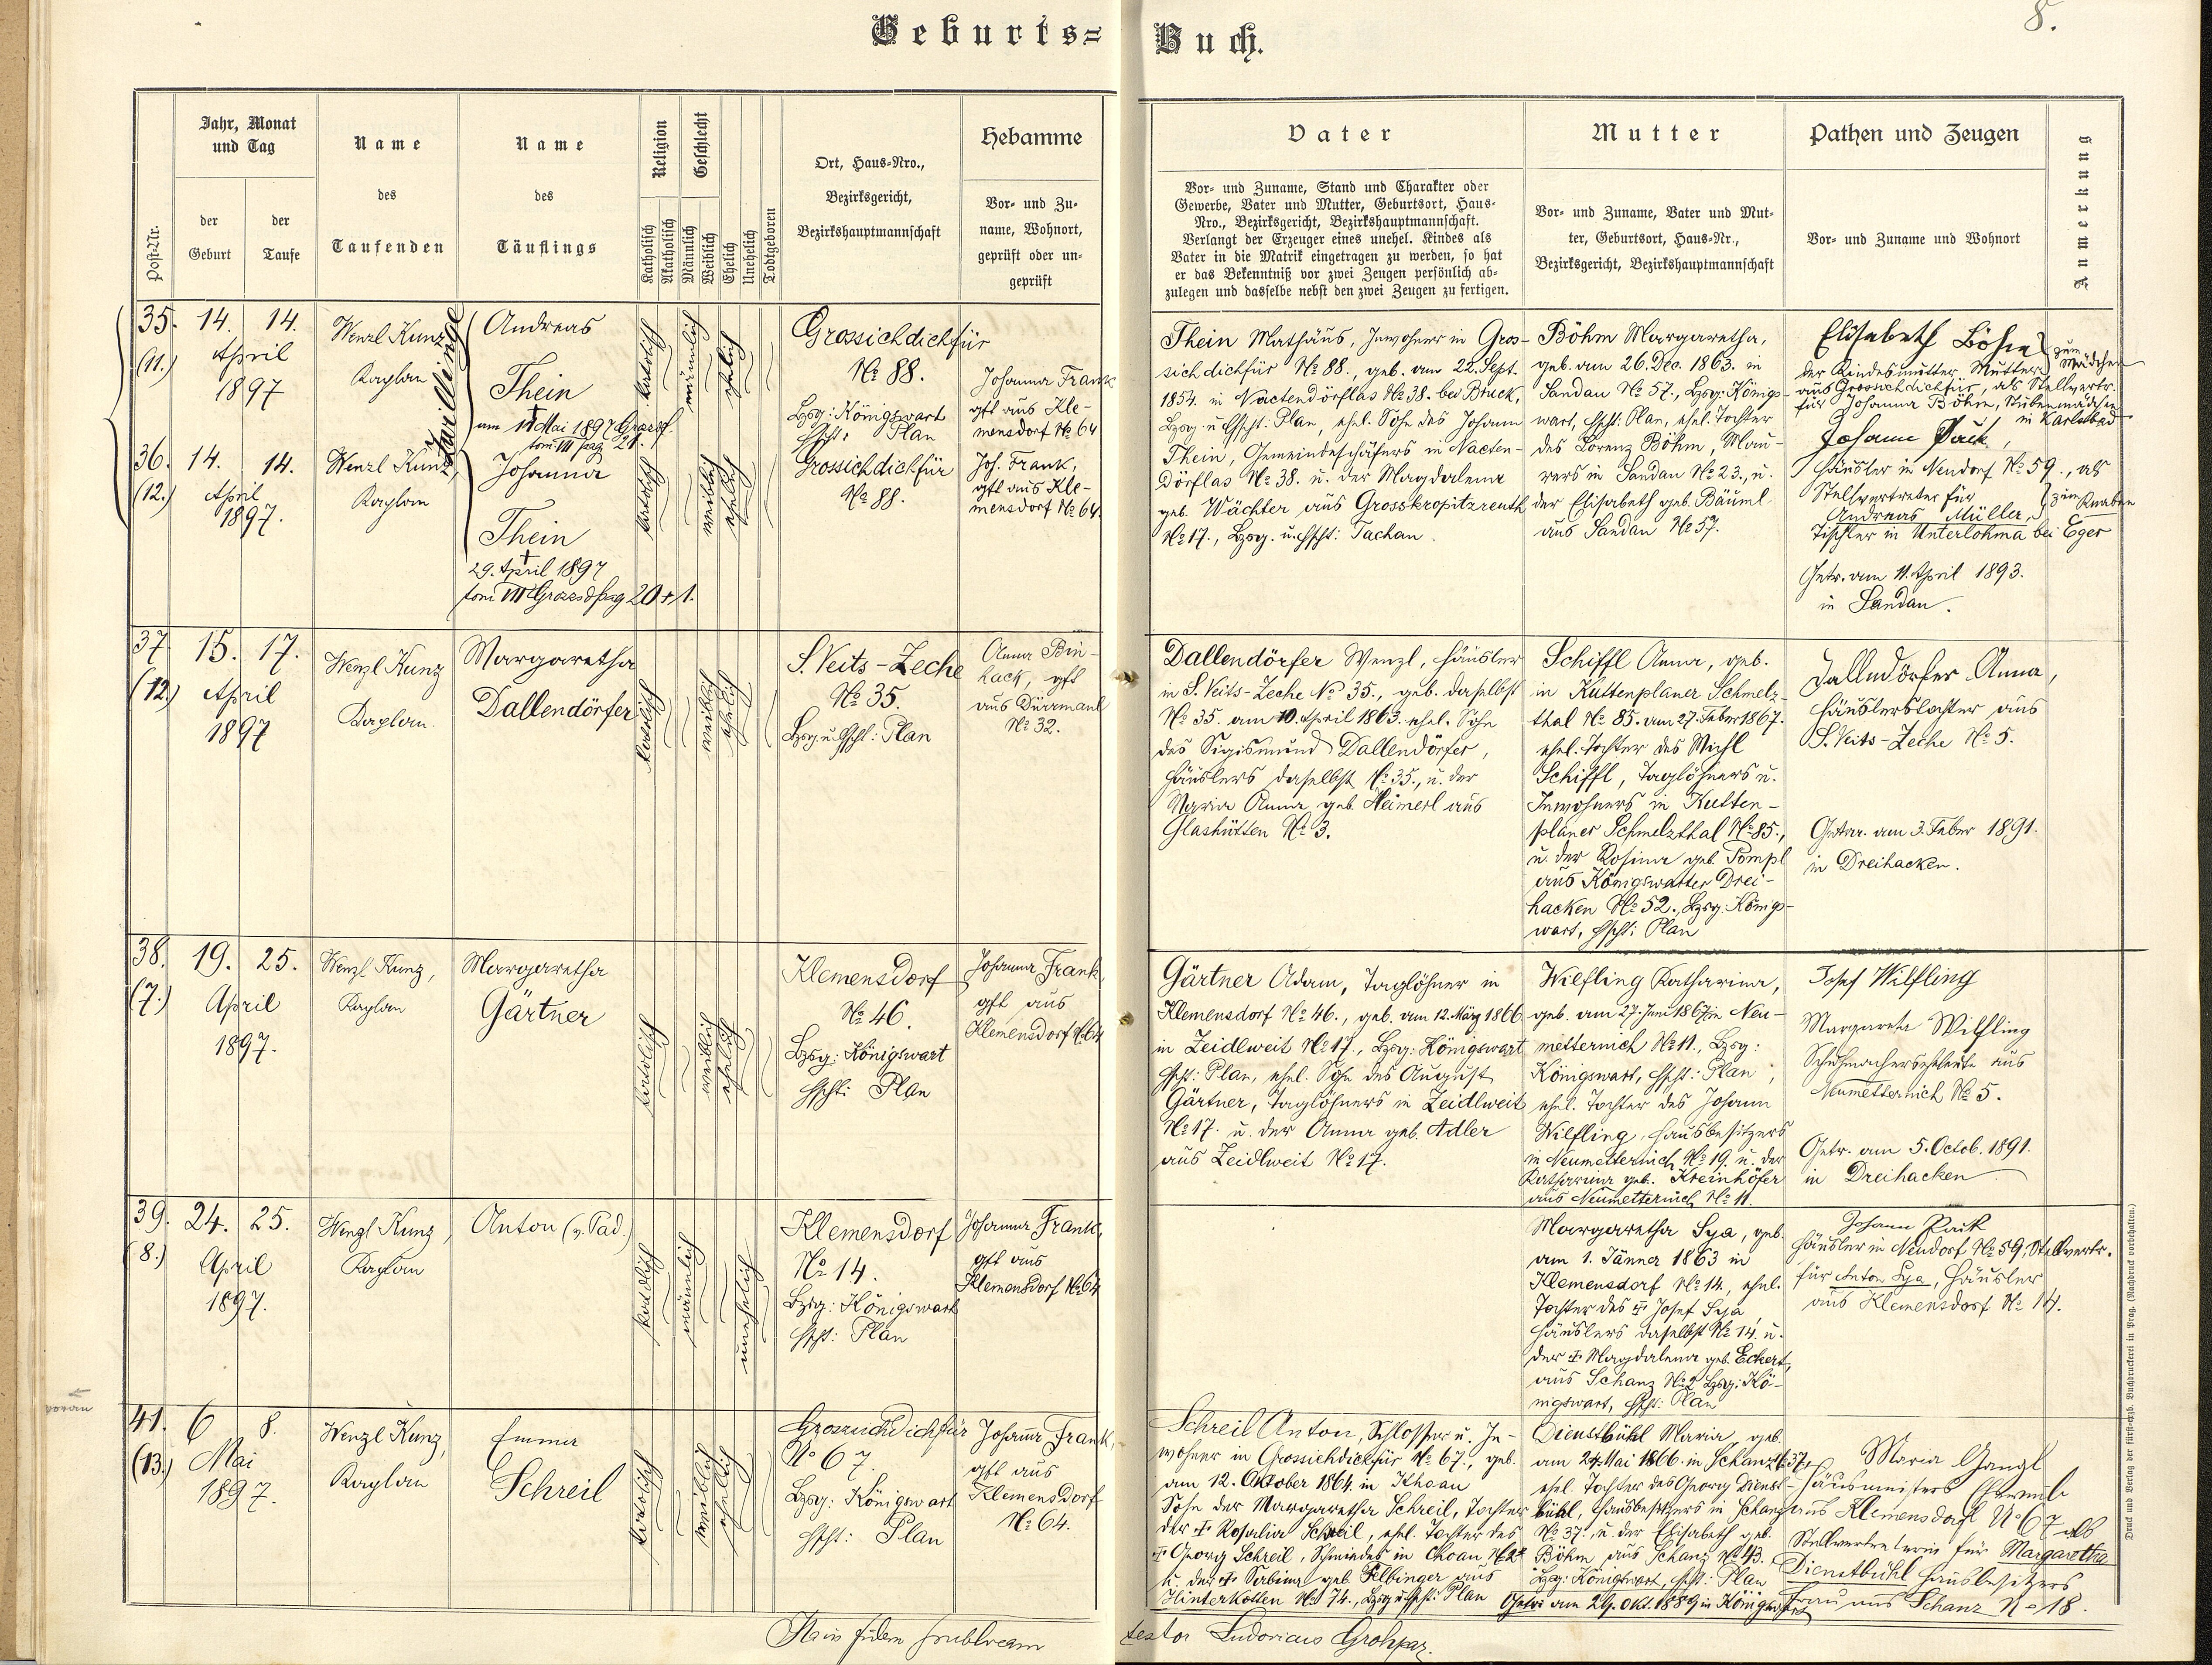 Geburts=
Buch.
8.
Post-Nr.
Jahr, Monat
und Tag
der
Geburt
der
Taufe
Name
des
Taufenden
Name
des
Täuflings
Religion
Katholisch
Akatholisch
Geschlecht
Männlich
Weiblich
Ehelich
Unehelich
Todtgeboren
Ort, Haus-Nro.,
Bezirksgericht,
Bezirkshauptmannschaft
Hebamme
Vor- und Zu-
name, Wohnort,
geprüft oder un-
geprüft
Vater
Vor- und Zuname, Stand und Charakter oder
Gewerbe, Vater und Mutter, Geburtsort, Haus-
Nro., Bezirksgericht, Bezirkshauptmannschaft.
Verlangt der Erzeuger eines unehel. Kindes als
Vater in die Matrik eingetragen zu werden, so hat
er das Bekenntniß vor zwei Zeugen persönlich ab-
zulegen und dasselbe nebst den zwei Zeugen zu fertigen.
Mutter
Vor- und Zuname, Vater und Mut-
ter, Geburtsort, Haus-Nr.,
Bezirksgericht, Bezirkshauptmannschaft
Pathen und Zeugen
Vor- und Zuname und Wohnort
Anmerkung
35.
(11.)
14. 14.
April
1897
Wenzl Kunz
Kaplan
Zwillinge
Andreas
Thein
am 11 Mai 1897 Grossf
tom VII pag 21.
katholisch
männlich
ehelich
Grossichdichfür
No 88.
Bzsg: Königswart
Hscht: Plan
Johanna Frank
gft aus Kle-
mensdorf No 64
Thein Mathäus, Inwohner in Gros-
sichdichfür No 88., geb. am 22. Sept.
1854. in Nactendörflas No 38. bei Bruck,
Bzsg u Hscht: Plan, ehel. Sohn des Johann
Thein, Gemeindeschäfers in Nacten-
dörflas No 38. u. der Magdalena
geb. Wächter aus Grosskropitzreuth
No 17., Bzsg. u. Hscht: Tachau.
Böhm Margaretha,
geb. am 26. Dec. 1863. in
Sandau No 57., Bzsg: Königs-
wart, Hscht: Plan, ehel. Tochter
des Lorenz Böhm, Mau-
rers in Sandau No 23., u.
der Elisabeth geb. Bäuml
aus Sandau No 57.
Elisabeth Böhm
der Kindesmutter Mutter
zum Mädchen
aus Grossichdichfür, als Stellvertr.
für Johanna Böhm, Stubenmädchen
in Karlsbad
Johann Paik,
Häusler in Neudorf No 59., als
Stellvertreter für
zum Knaben
Andreas Müller,
Tischler in Unterlohma bei Eger
Getr. am 11. April 1893.
in Sandau.
36.
(12.)
14. 14.
April
1897.
Wenzl Kunz,
Kaplan
Johanna
Thein
29. April 1897
tom VII Grossd pag 20 + 1.
katholisch
weiblich
ehelich
Grossichdichfür
No 88.
Joh. Frank,
gft aus Kle-
mensdorf No 64.
37
(12.)
15. 17.
April
1897
Wenzl Kunz
Kaplan.
Margaretha
Dallendörfer
katholisch
weiblich
ehelich
S. Veits-Zeche
No 35.
Bzsg. u. Hscht: Plan
Anna Bin-
hack, gft
aus Dürrmaul
No 32.
Dallendörfer Wenzl, Häusler
in S. Veits-Zeche No 35., geb. daselbst
No 35. am 10. April 1863. ehel. Sohn
des Sigismund Dallendörfer,
Häuslers daselbst No 35., u. der
Maria Anna, geb. Heimerl aus
Glashütten No 3.
Schiffl Anna, geb.
in Kuttenplaner Schmelz-
thal No 85. am 27. Feber 1867.
ehel. Tochter des Michl
Schiffl, Taglöhners u.
Inwohners in Kutten-
planer Schmelzthal No 85.,
u. der Rosina geb. Pompl
aus Königswarter Drei-
hacken No 52., Bzsg: Königs-
wart, Hscht: Plan
Dallendörfer Anna,
Häuslerstochter aus
S. Veits-Zeche No 5.
Getr. am 3. Feber 1891.
in Dreihacken.
38.
(7.)
19. 25.
April
1897.
Wenzl Kunz,
Kaplan
Margaretha
Gärtner
katholisch
weiblich
ehelich
Klemensdorf
No 46.
Bzsg: Königswart
Hscht: Plan
Johanna Frank,
gft aus
Klemensdorf No 64
Gärtner Adam, Taglöhner in
Klemensdorf No 46., geb. am 12. März 1866
in Zeidlweit No 17., Bzsg: Königswart
Hscht: Plan, ehel. Sohn des August
Gärtner, Taglöhners in Zeidlweit
No 17. u. der Anna geb. Adler
aus Zeidlweit No 17.
Wilfling Katharina,
geb. am 27. Juni 1867 in Neu-
metternich No 11., Bzsg:
Königswart, Hscht: Plan,
ehel. Tochter des Johann
Wilfling, Hausbesitzers
in Neumetternich No 19. u. der
Katharina geb. Kreinhöfer
aus Neumetternich No 11.
Josef Wilfling
Margareta Wilfling
Schuhmacherseheleute aus
Neumetternich No 5.
Getr. am 5. Octob. 1891.
in Dreihacken
39.
(8.)
24. 25.
April
1897.
Wenzl Kunz,
Kaplan
Anton (v. Pad.)
katholisch
männlich
unehelich
Klemensdorf
No 14.
Bzsg: Königswart
Hscht: Plan
Johanna Frank,
gft aus
Klemensdorf No 64
Margaretha Sya, geb.
am 1. Jänner 1863 in
Klemensdorf No 14., ehel.
Tochter des † Josef Sya
Häuslers daselbst No 14. u.
der † Magdalena geb. Eckert,
aus Schanz No 2 Bzsg: Kö-
nigswart, Hscht: Plan
Johann Paik
Häusler in Neudorf No 59, Stellvertr.
für Anton Sya, Häusler
aus Klemensdorf No 14.
voran
41.
(13.)
6 8.
Mai
1897.
Wenzl Kunz,
Kaplan
Emma
Schreil
katholisch
weiblich
ehelich
Grossichdichfür
No 67.
Bzsg: Königswart
Hscht: Plan
Johanna Frank,
gft aus
Klemensdorf
No 64.
Schreil Anton, Schlosser u. In-
wohner in Grossichdichfür No 67., geb.
am 12. Oktober 1864. in Khoau
Sohn der Margaretha Schreil, Tochter
der † Rosalia Schreil, ehel. Tochter des
† Georg Schreil, Schmiedes in Choau No 2
u. der † Sabina geb. Felbinger aus
Hinterkotten No 74., Bzsg u Hscht: Plan
Dienstbühl Maria, geb.
am 24. Mai 1866. in Schanz No 37.,
ehel. Tochter des Georg Dienst-
bühl, Hausbesitzers in Schanz
No 37., u. der Elisabeth geb.
Böhm aus Schanz No 43.
Bzsg: Königswart, Hscht: Plan
Getr. am 29. Okt. 1889 in Königswart
Maria Gangl
Hausmeisters
aus Klemensdorf No 67 als
Stellvertreterin für Margaretha
Dienstbühl Hausbesitzers
Frau aus Schanz No 18.
testor Ludovicus Grohpaz.
Druck und Verlag der fürst-erzb. Buchdruckerei in Prag. (Nachdruck vorbehalten.)